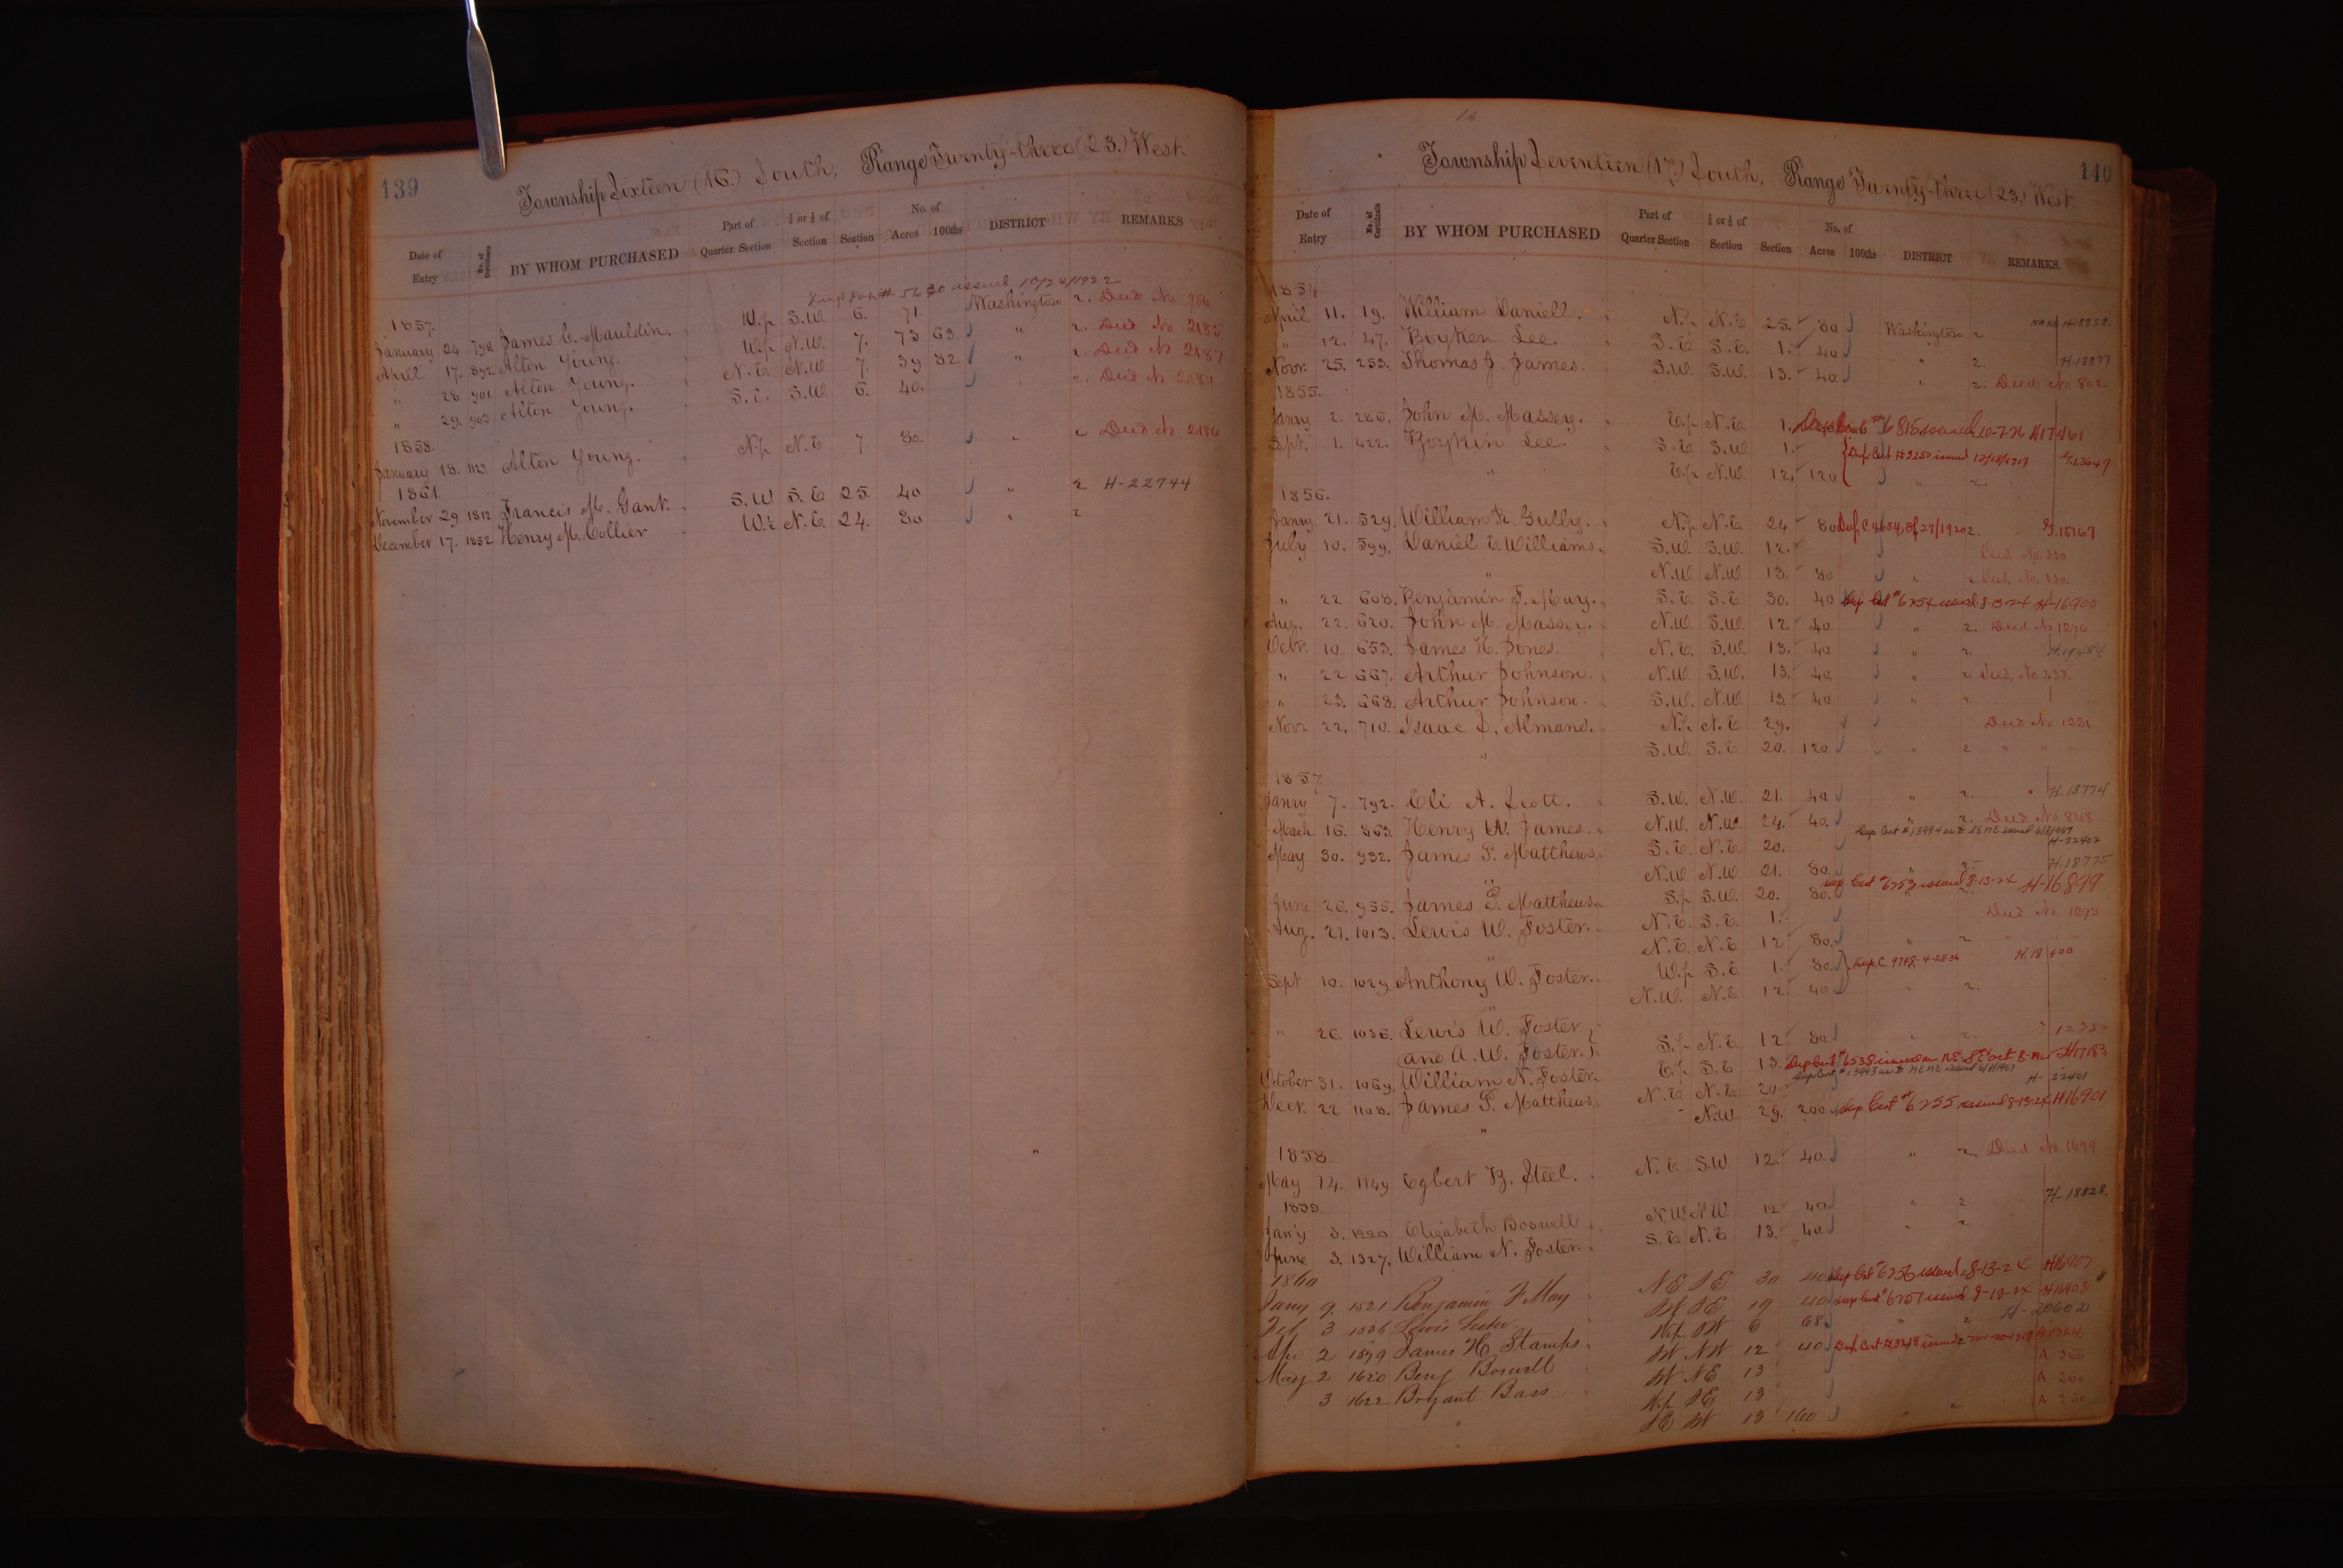 139
Township Sixteen (16.) South, Range Twenty-three (23.) West.
Date of Entry No. of Certificate BY WHOM PURCHASED Part of Quarter Section ¼ or ½ of Section Section No. of Acres 100ths DISTRICT REMARKS
issued 10/24/1922
1857.
January 24 James C. Mauldin. W.½ S.W. 6. 71. Washington 2. Deed No 986
April 17. 892 Alton Young. W.½ N.W. 7. 73 63. " 2. Deed No 2185
" 28 901 Alton Young. N.E. N.W. 7. 39 82. " 2. Deed No 2187
" 29. 903 Alton Young. S.E. S.W. 6. 40. 2. Deed No 2184
1858.
January 18. 1123 Alton Young. N.½ N.E 7. 80. " 2 Deed No. 2186
1861.
November 29 1812 Francis M. Gant. S.W. S.E 25. 40 " 2 H-22744
December 17. 1852 Henry M. Collier W.½ N.E. 24. 80 " 2
140
16
Township Seventeen (17.) South, Range Twenty-three (23.) West.
Date of Entry No. of Certificate BY WHOM PURCHASED Part of Quarter Section ¼ or ½ of Section Section No. of Acres 100ths DISTRICT REMARKS
1854
April 11. 19. William Daniell. N.½ N.E 25. 80 Washington 2
" 12. 47. Boyken Lee. S.E S.E. 1. 40 " 2. H-18377
Novr. 25. 253. Thomas J. James. S.W. S.W. 13. 40 " 2. Deed No 802
1855.
Janry 2. 286. John M. Massey. E.½ N.E 1. issued 10-7-26 H17461
Sept. 1. 422. Boykin Lee. S.E S.W 1. Dup Cert #3250 issued 12/18/1917 G.13647
" E.½ N.W. 12. 120 " 2.
1856.
Janry 21. 529. William R. Gully. N.½ N.E 24 80 Dup C. 4684, 8/27/1920 2. G.15167
July 10. 599. Daniel E. Williams. S.W. S.W. 12. Deed, No. 330
" N.W. N.W. 13. 80 " 2 Deed, No. 330.
" 22 608. Benjamin F. May. S.E S.E 30. 40 Dup Cert #6254 issued 8-13-24 H-16900
Aug. 22. 620. John M. Massey. N.W. S.W. 12 40 " 2. Deed No 1276
Octr. 10. 653. James H. Jones. N.E. S.W. 13. 40 " 2. H.19484
" 22 667. Arthur Johnson. N.W. S.W. 13. 40 " 2 Deed, No. 433.
" 23. 668. Arthur Johnson. S.W. N.W. 13 40 " 2
Novr 22. 710. Isaac S. Almand. N.½ N.E 29. Deed No 1221
" S.W. S.E 20. 120 " 2 " " "
1857.
Janry 7. 792. Eli A. Scott. S.W. N.W. 21. 40 " 2. H-18774
March 16. 863. Henry W. James. N.W. N.W 24. 40. " 2. Deed No 848
Dup Cert #13994 as to SE NE issued 6/8/1967
May 30. 932. James P. Matthews. S.E. N.E. 20. H-22402
" N.W. N.W 21. 80 " 2 H-18775
June 26. 955. James P. Matthews. S.½ S.W. 20. 80. Dup Cert #6253 issued 8-13-24 H-16899
Aug. 21. 1013. Lewis W. Foster. N.E. S.E. 1. Deed No
" N.E. N.E 12 80. " 2
Sept 10. 1029. Anthony W. Foster. W.½ S.E 1. 80. Dup C. 9748. 4-28-36 H.18400
" N.W. N.E 12. 40 " 2.
" 26 1036. Lewis W. Foster
and A. W. Foster. S.½ N.E 12 80 " 2
October 31. 1069. William N. Foster. E.½ S.E 13. Dup Cert #6538 issued H17183
Dup Cert #13993 as to NE NE issued 6/8/1967
Decr. 22 1108. James P. Matthews. N.E N.E 20 H-22401
" N.W 29. 200 Dup Cert #6255 issued 8-13-24 H16901
1858.
May 14. 1149 Egbert B. Steel. N.E S.W. 12. 40. " 2. Deed No 1499
1859.
Jan'y 3. 1220 Elizabeth Boswell N.W N.W. 12 40 " 2 H-18828.
June 3. 1327. William N. Foster. S.E N.E 13. 40. " 2
1860
Jany 9. 1521 Benjamin F May NE SE 30 40 Dup Cert #6256 issued 8-13-24 H16902
Feb 3 1536 Lewis SW SE 19 40 Dup Cert #6257 issued 8-13-24 H16903
Apr 2 1579 James H Stamps. W½ SW 6 68 " 2 H-20602
May 2 1620 Benj Boswell SW NW 12 40 Dup Cert #3248 issued
3 1622 Bryant Bass SW NE 13 A 260
" W½ SE 13 A 260
SE SW 13 160 " " A 260